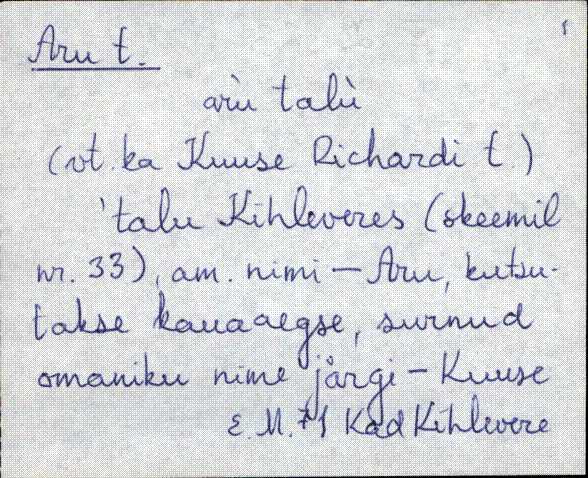 Aru t.
arù talù
(vt. ka Kuuse Richardi t)
'talu Kihleveres (skeemil
nr. 33), am. nimi – Aru, kutsu-
takse kauaaegse, surnud
omaniku nime järgi – Kuuse
E. M. 71 Kad Kihlevere